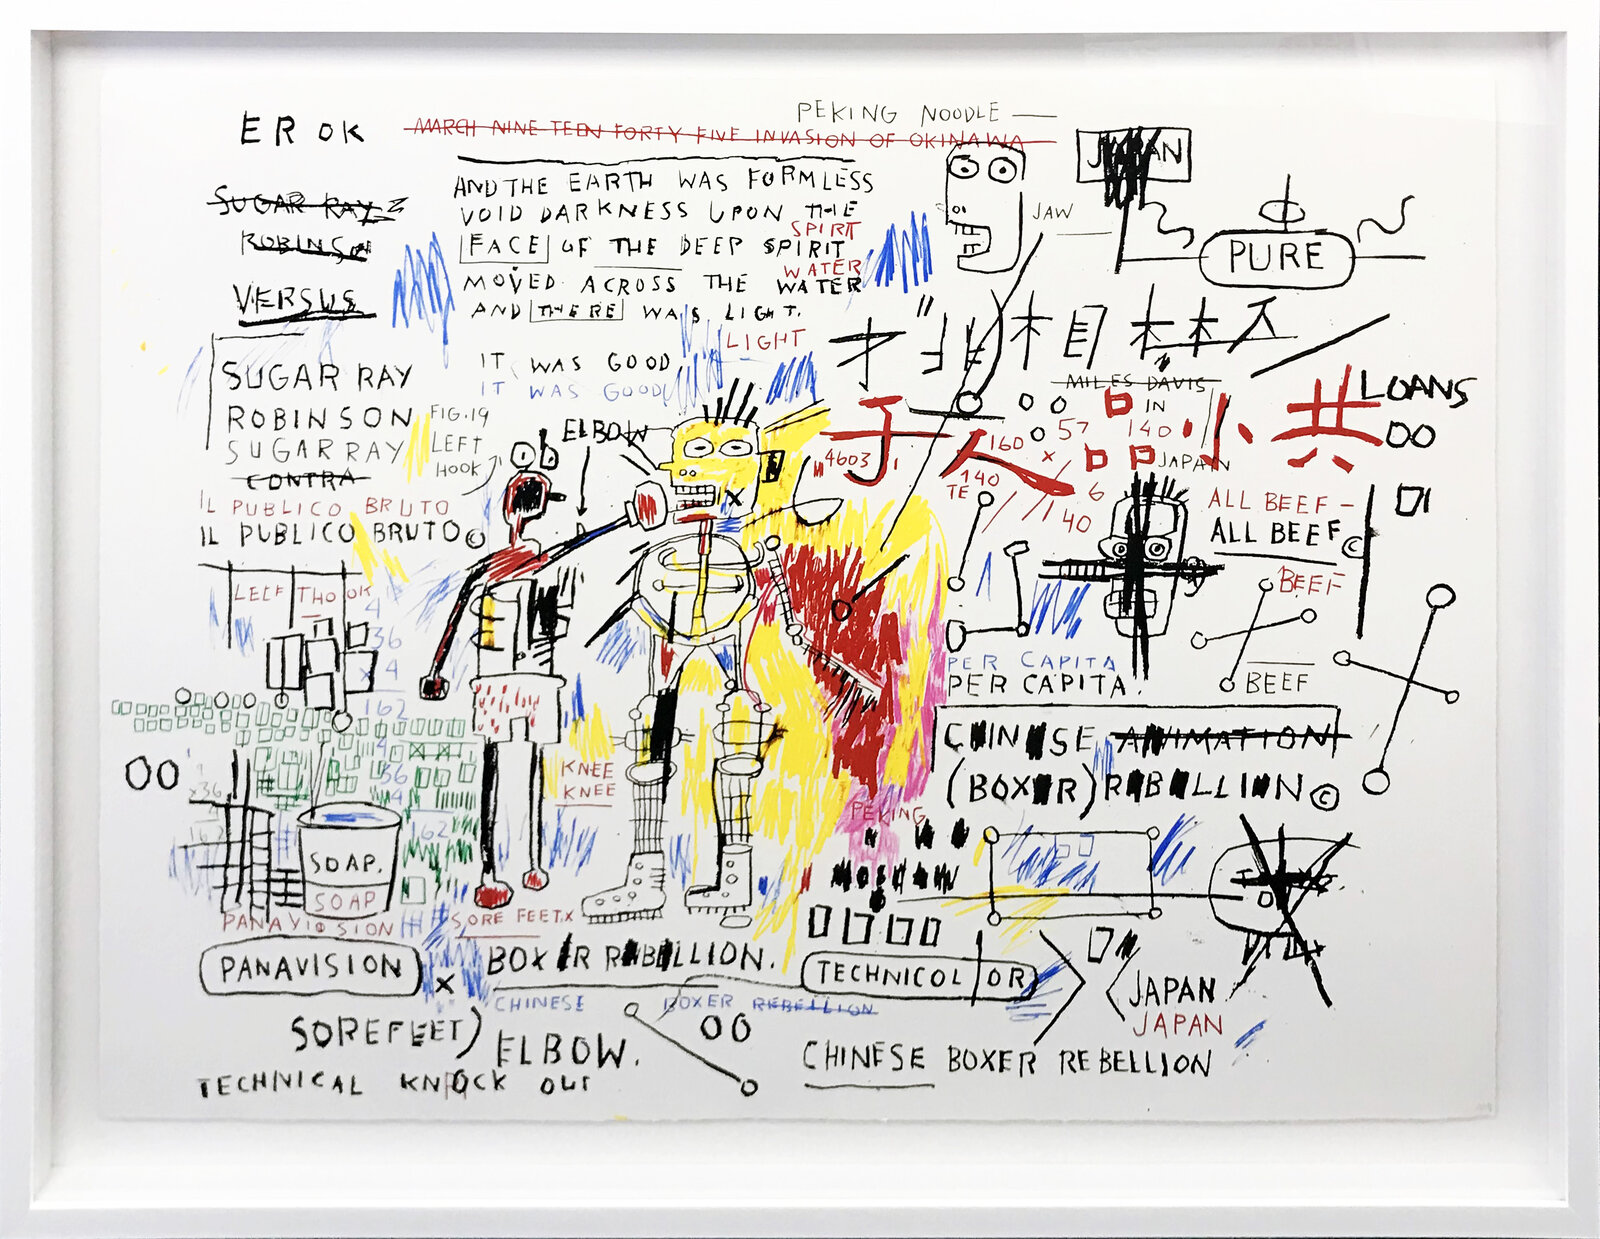 PEKING NOODLE —
EROK
MARCH NINE TEEN FORTY FIVE INVASION OF OKINAWA
JAPAN
AND THE EARTH WAS FORMLESS
VOID DARKNESS UPON THE
SPIRIT
FACE OF THE DEEP SPIRIT
WATER
MOVED ACROSS THE WATER
AND THERE WAS LIGHT.
LIGHT
IT WAS GOOD
IT WAS GOOD
SUGAR RAY
ROBINSON
VERSUS
SUGAR RAY
ROBINSON
SUGAR RAY
CONTRA
IL PUBLICO BRUTO
IL PUBLICO BRUTO©
FIG.19
LEFT
HOOK
ELBOW
JAW
PURE
MILES DAVIS
LOANS
00
子人品小共
IN
57
140
160
x
4603
140
TE
6
40
JAPAN
ALL BEEF -
ALL BEEF©
BEEF
BEEF
PER CAPITA
PER CAPITA.
CHINESE ANIMATION
(BOXER) REBELLION©
LEFT HOOK
4
36
x 4
162
4
36
4
162
00
x36
162
SOAP.
SOAP
KNEE
KNEE
PEKING
PANAVISION
PANAVISION
x
SORE FEET x
BOXER REBELLION.
CHINESE BOXER REBELLION
TECHNICOLOR
JAPAN
JAPAN
SOREFEET)
ELBOW.
00
TECHNICAL KNOCK OUT
CHINESE BOXER REBELLION